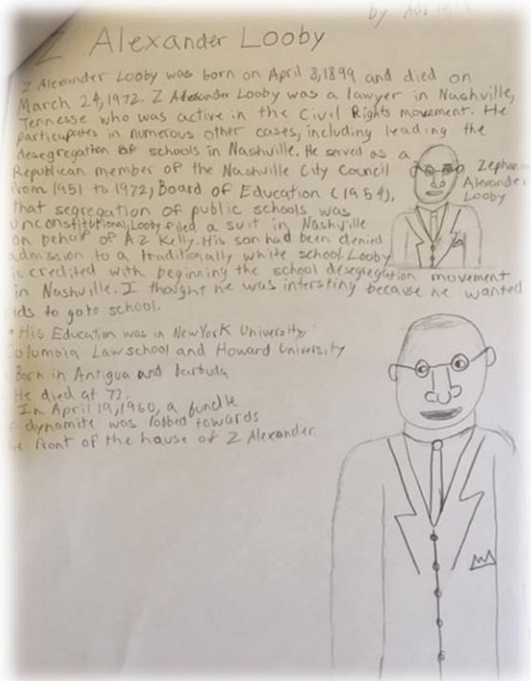 by
Z Alexander Looby
Z Alexander Looby was born on April 8, 1899 and died on
March 24, 1972. Z Alexander Looby was a lawyer in Nashville,
Tennesse who was active in the Civil Rights movement. He
participates in numerous other cases, including leading the
desegregation of schools in Nashville. He served as a
Republican member of the Nashville City Council
from 1951 to 1972, Board of Education (1954),
that segregation of public schools was
unconstitutional, Looby filed a suit in Nashville
on behalf of A Z Kelly. His son had been denied
admission to a traditionally white school. Looby
is credited with beginning the school desegregation movement
in Nashville. I thought he was intersting because he wanted
kids to goto school.
Zephaniah
Alexander
Looby
• His Education was in NewYork University,
Columbia Lawschool and Howard University
Born in Antigua and Barbuda
He died at 72.
In April 19, 1960, a bundle
of dynamite was lobbed towards
the front of the house of Z Alexander.